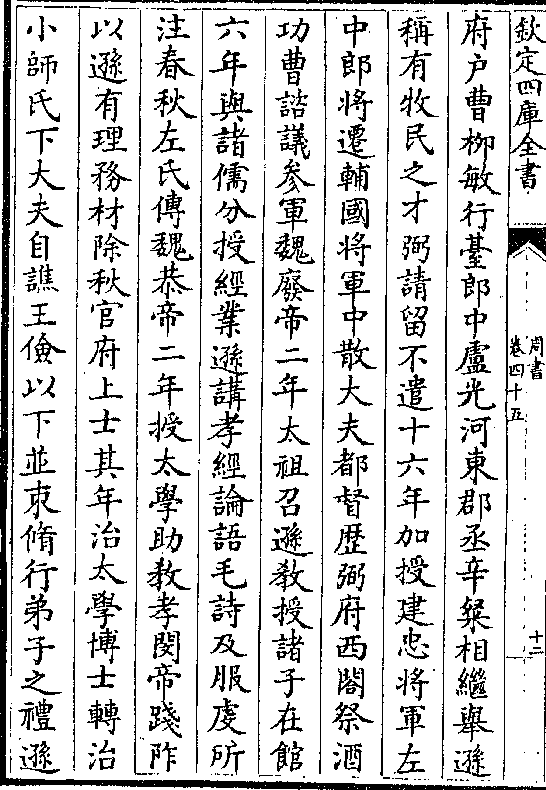 欽定四庫全書
周書
卷四十五
十二
府户曹柳敏行臺郎中盧光河東郡丞辛粲相繼舉遜
稱有牧民之才弼請留不遣十六年加授建忠將軍左
中郎將遷輔國將軍中散大夫都督歴弼府西閤祭酒
功曹諮議參軍魏廢帝二年太祖召遜教授諸子在館
六年與諸儒分授經業遜講孝經論語毛詩及服虔所
注春秋左氏傳魏恭帝二年授太學助教孝閔帝踐阼
以遜有理務材除秋官府上士其年治太學博士轉治
小師氏下大夫自譙王儉以下並束脩行弟子之禮遜